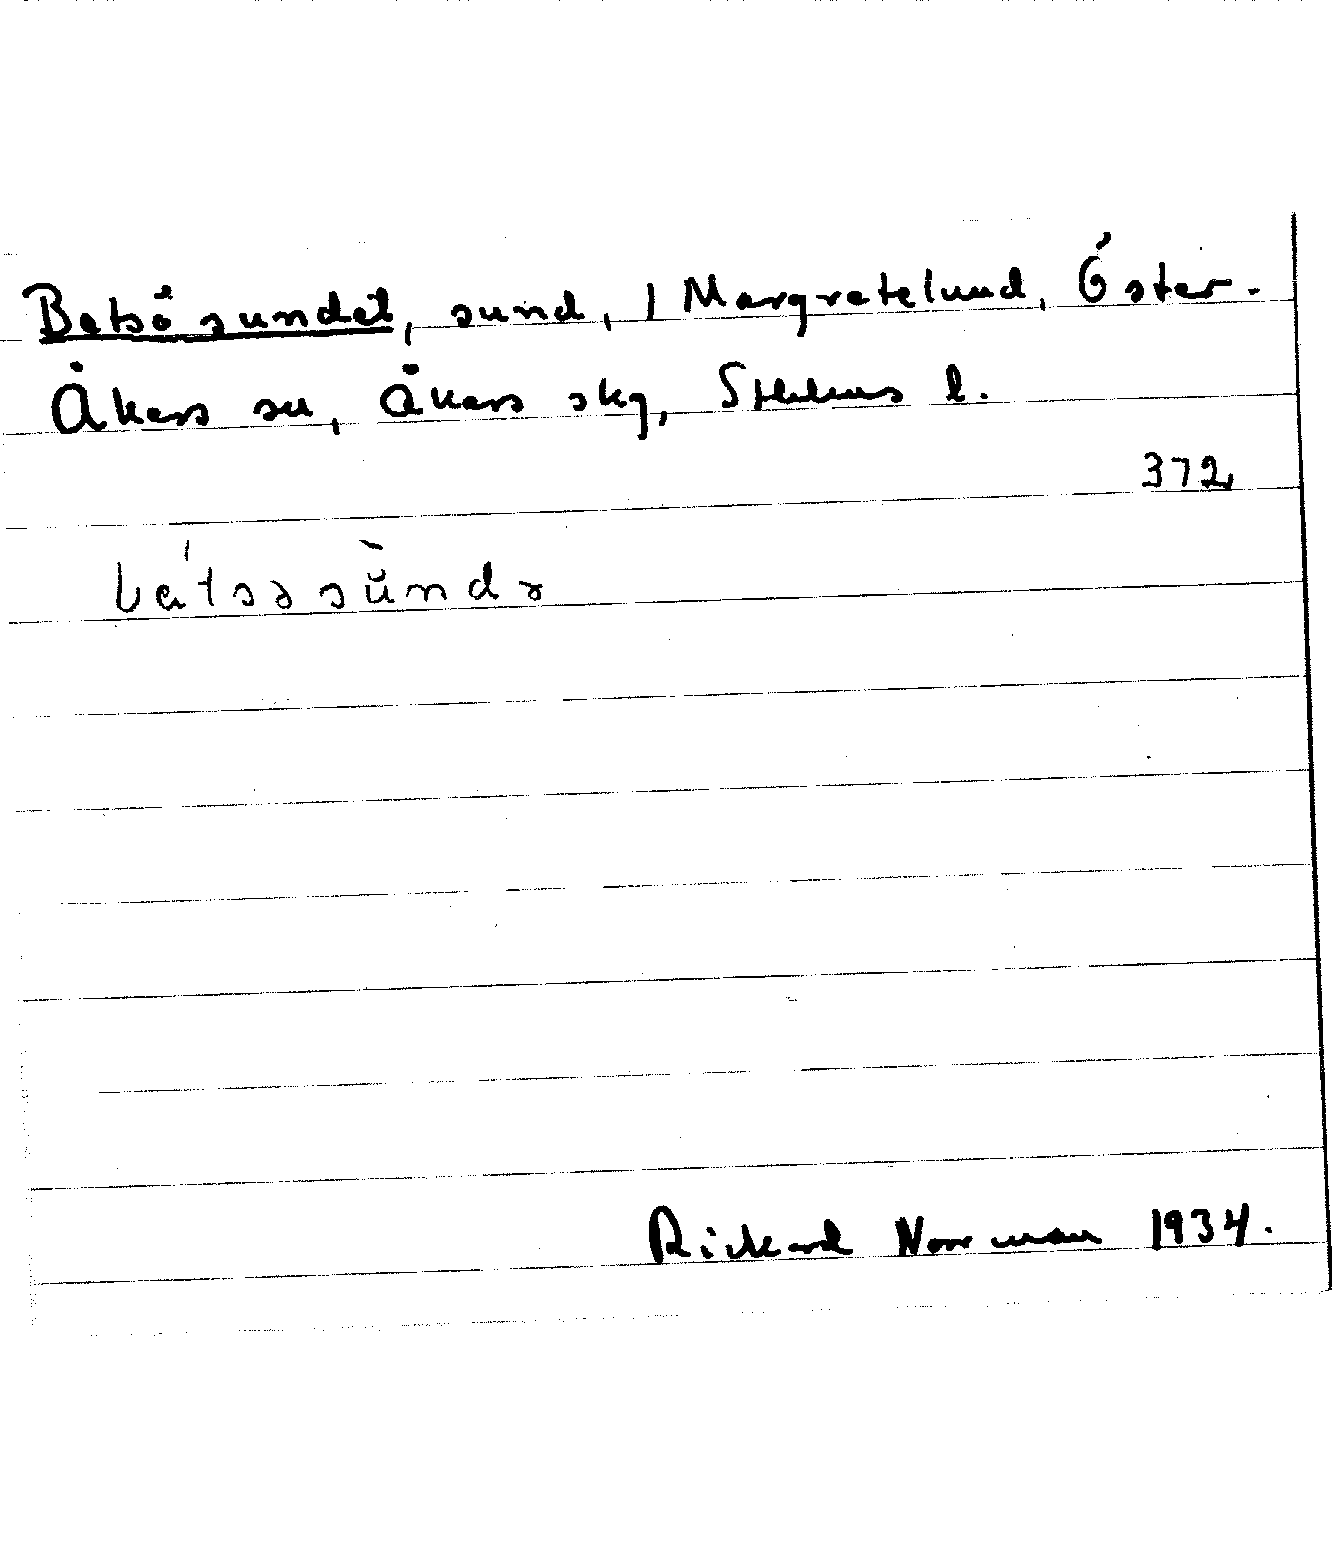 Betsö sundet, sund, 1 Margretelund, Öster-
Åkers sn, Åkers skg, Sthlms l.
372
Rickard Norrman 1934.